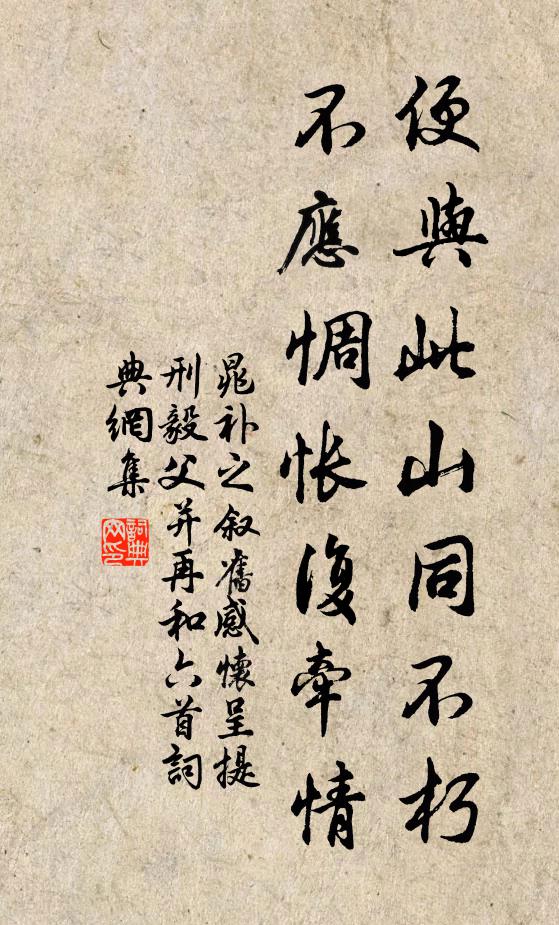 便與此山同不朽
不應惆悵復牽情
晁补之叙舊感懷呈提
刑毅父并再和六首詞
典網集
詞典網印